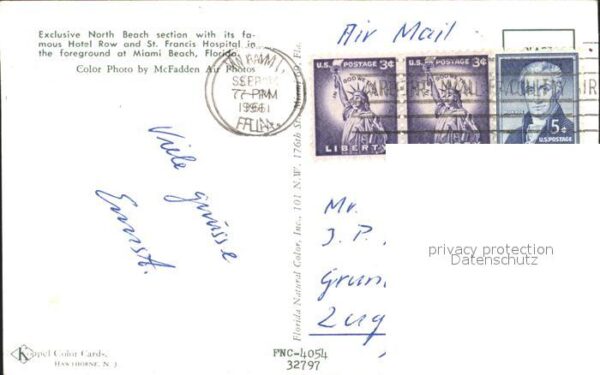 Exclusive North Beach section with its fa-
mous Hotel Row and St. Francis Hospital in
the foreground at Miami Beach, Florida.
Color Photo by McFadden Air Photos
Air Mail
MIAMI,
SEP
7 PM
1961
FLA.
U.S. POSTAGE 3¢
IN GOD WE TRUST
LIBERTY
U.S. POSTAGE 3¢
LIBERTY
5¢
U.S. POSTAGE
Viele grüsse
Ernst.
Florida Natural Color, Inc., 101 N.W. 176th St., Miami 69, Fla.
Mr.
J. P.
Grun
Zug
privacy protection
Datenschutz
K
Koppel Color Cards,
HAWTHORNE, N. J.
FNC-4054
32797